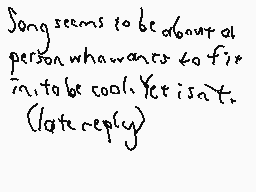 Song seems to be about a
person who wants to fit
in, to be cool. Yet isn't.
(late reply)